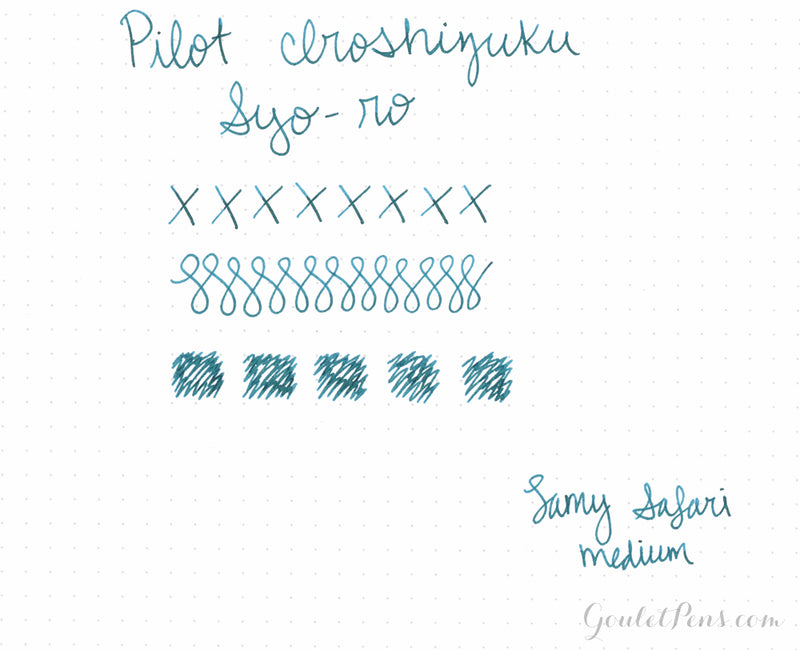 Pilot Iroshizuku
Syo-ro
X X X X X X X X
Lamy Safari
medium
GouletPens.com